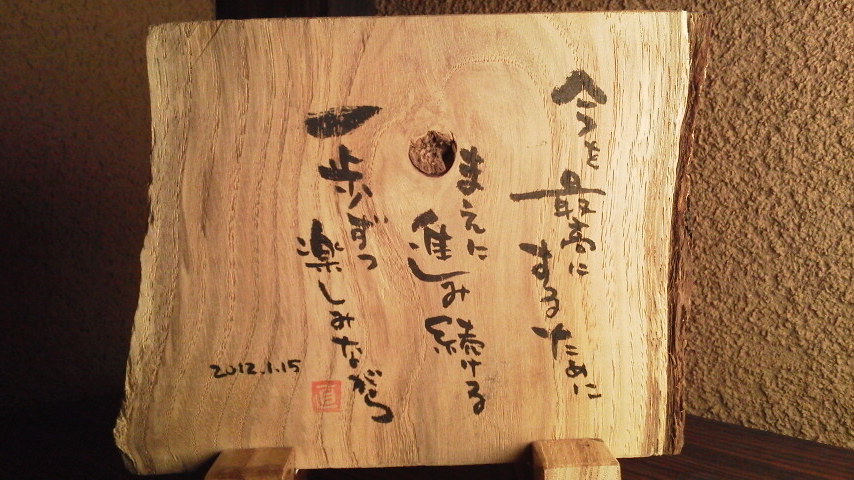 今を最高にするために
まえに進み続ける
一歩ずつ楽しみながら
2012.1.15
直